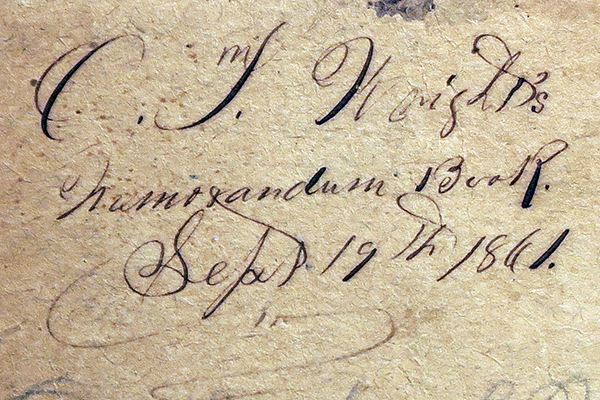 C. S. Wright's
Memorandum Book.
Sept 19th 1861.